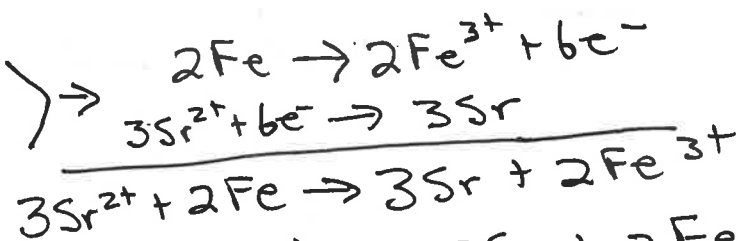 2Fe → 2Fe³⁺ + 6e⁻
3Sr²⁺ + 6e⁻ → 3Sr
3Sr²⁺ + 2Fe → 3Sr + 2Fe³⁺